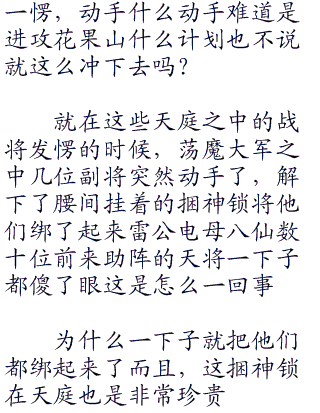 一愣，动手什么动手难道是
进攻花果山什么计划也不说
就这么冲下去吗？
就在这些天庭之中的战
将发愣的时候，荡魔大军之
中几位副将突然动手了，解
下了腰间挂着的捆神锁将他
们绑了起来雷公电母八仙数
十位前来助阵的天将一下子
都傻了眼这是怎么一回事
为什么一下子就把他们
都绑起来了而且，这捆神锁
在天庭也是非常珍贵